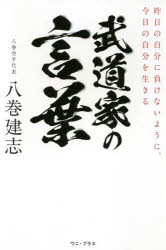 昨日の自分に負けないように、
今日の自分を生きる
武道家の
言葉
八巻空手代表
八巻建志
ワニ・プラス